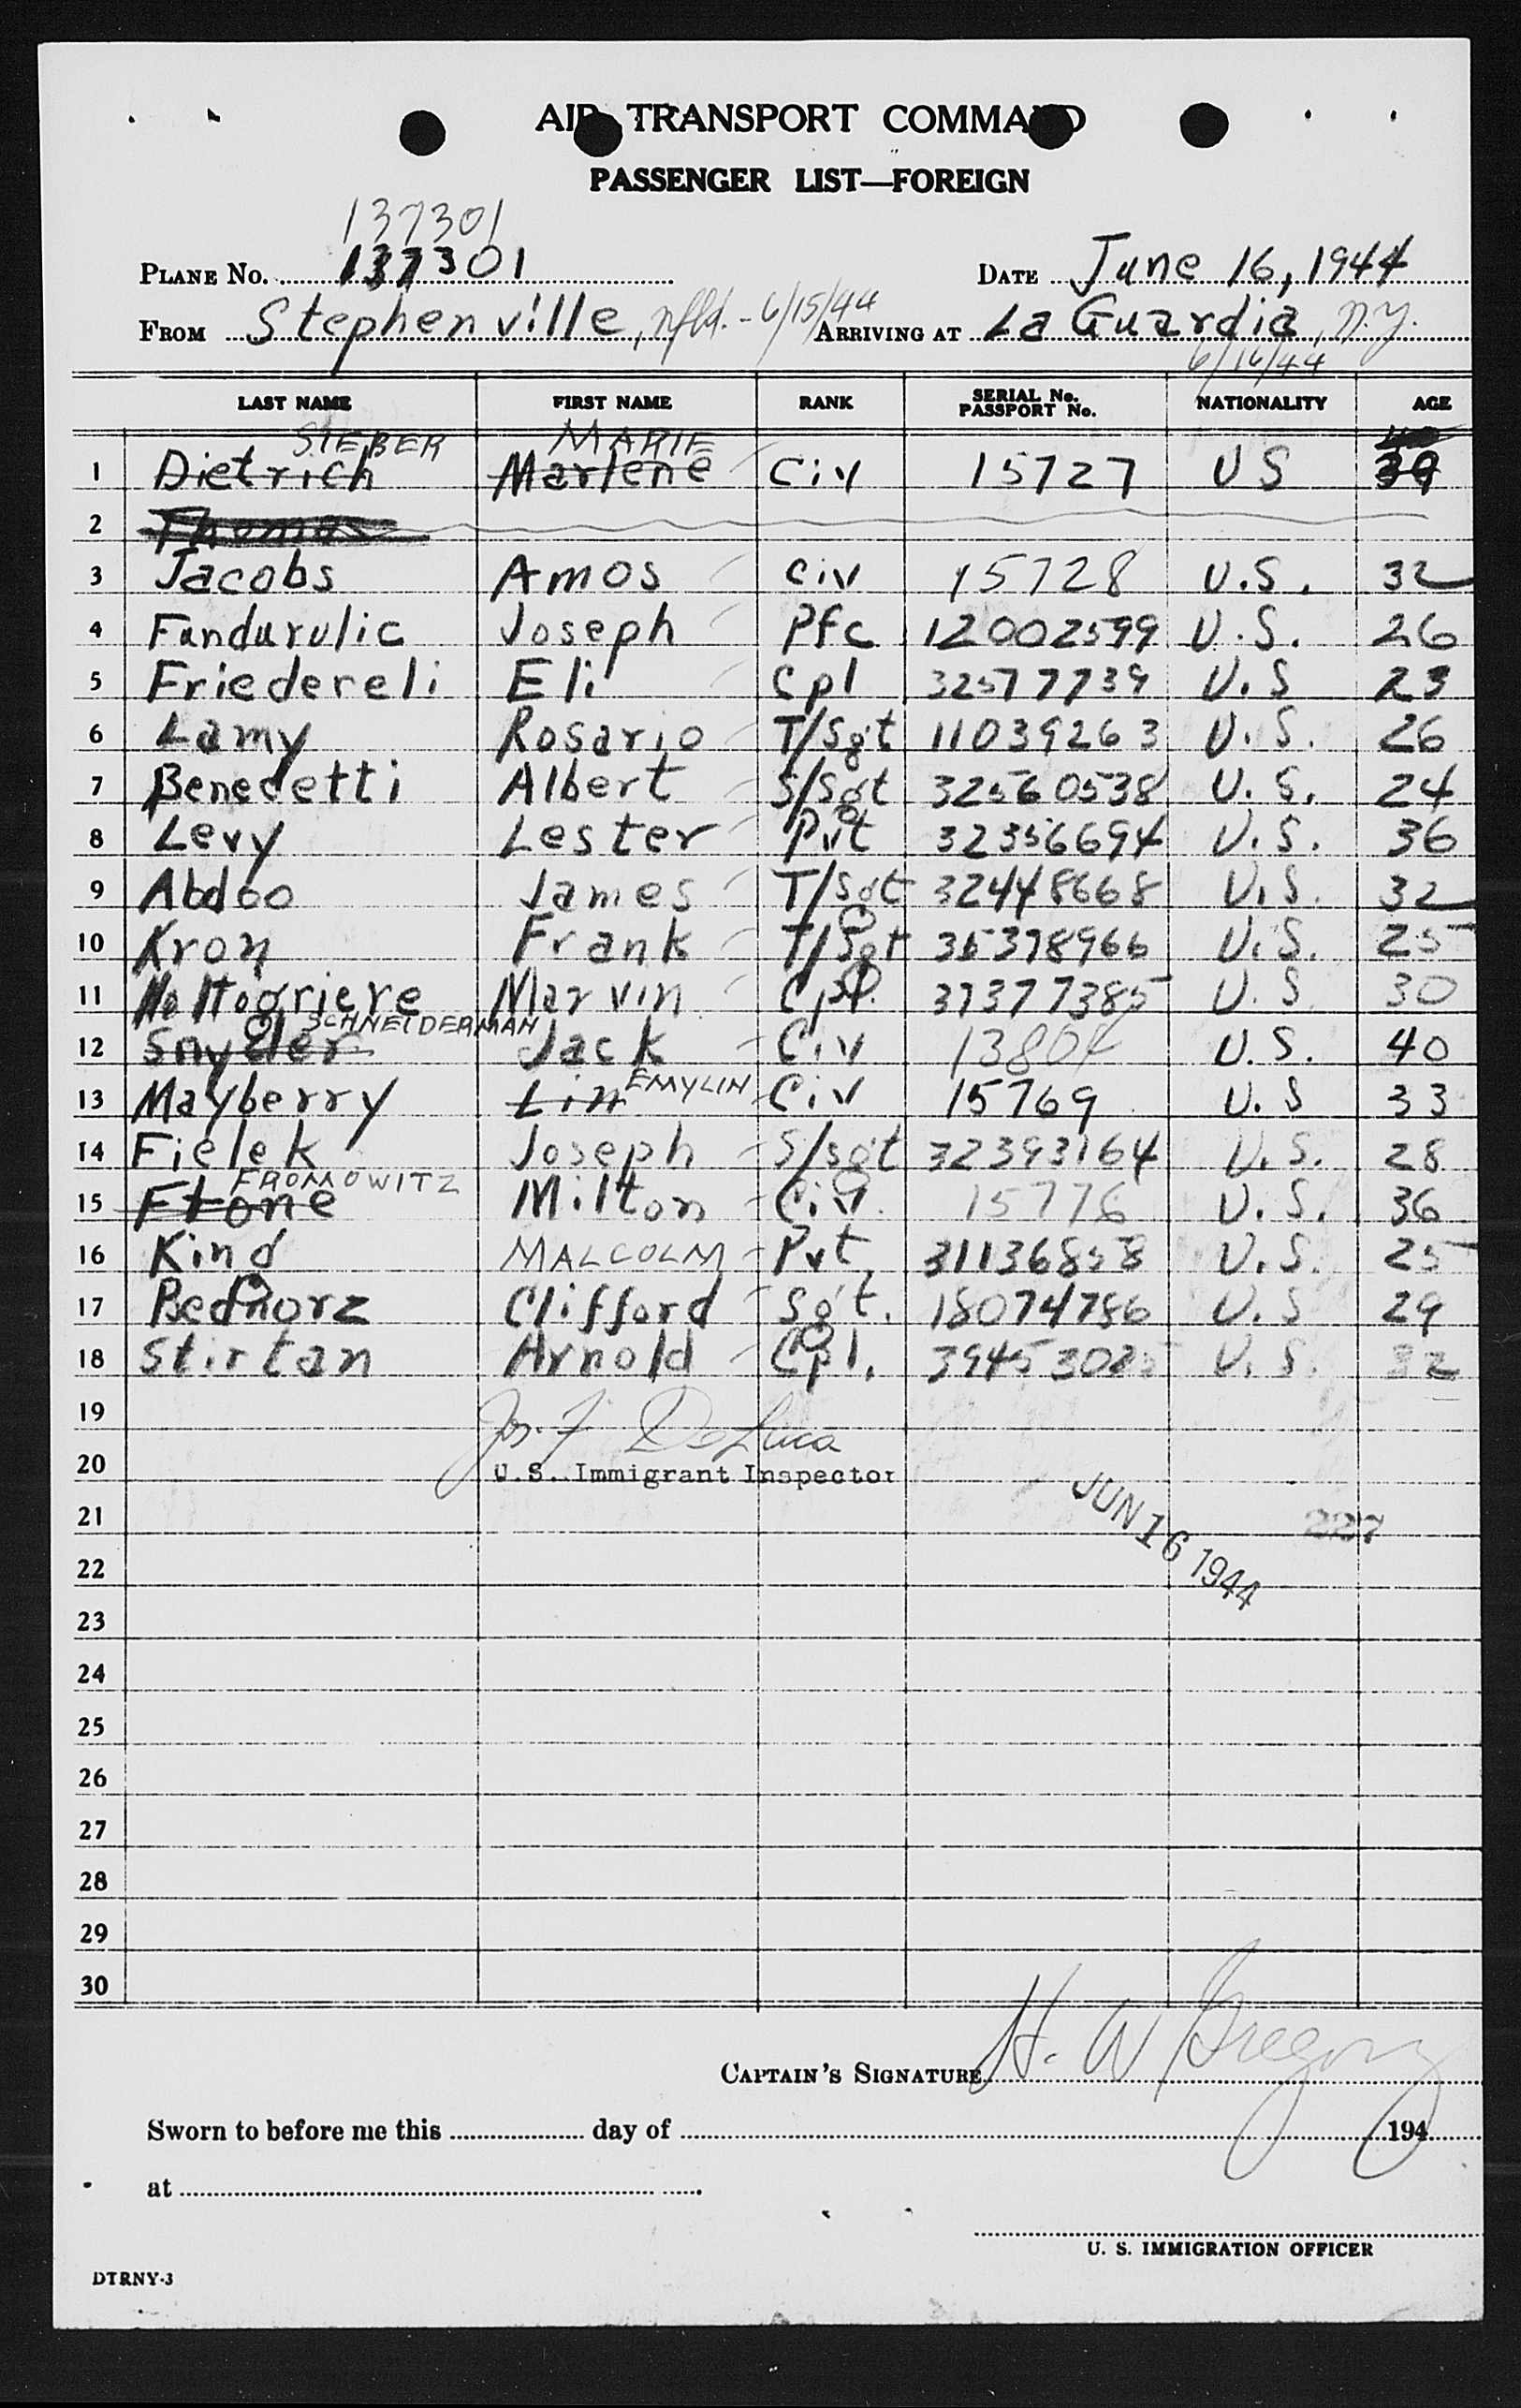 AIR TRANSPORT COMMAND
PASSENGER LIST—FOREIGN
137301
PLANE No. 137301 DATE June 16, 1944
FROM Stephenville, Nfld. - 6/15/44 ARRIVING AT La Guardia, N.Y.
6/16/44
LAST NAME FIRST NAME RANK SERIAL No. PASSPORT No. NATIONALITY AGE
SIEBER MARIE
1 Dietrich Marlene Civ 15727 US 39
2 Thomas
3 Jacobs Amos Civ 15728 U.S. 32
4 Fundurulic Joseph Pfc 12002599 U.S. 26
5 Friedereli Eli Cpl 32577739 U.S 23
6 Lamy Rosario T/Sgt 11039263 U.S. 26
7 Benedetti Albert S/Sgt 32560538 U.S. 24
8 Levy Lester Pvt 32356694 U.S. 36
9 Abdoo James T/Sgt 32448668 U.S. 32
10 Kron Frank T/Sgt 35378966 U.S. 25
11 Marvin Cpl. 37377385 U.S. 30
SCHNEIDERMAN
12 Snyder Jack Civ 13804 U.S. 40
EMYLIN
13 Mayberry Lin Civ 15769 U.S 33
14 Fielek Joseph S/Sgt 32393164 U.S. 28
FROMOWITZ
15 Milton Civ. 15776 U.S. 36
16 King MALCOLM Pvt. 31136858 U.S. 25
17 Bednorz Clifford Sgt. 18074786 U.S 29
18 Stirtan Arnold Cpl. U.S. 32
19 Jos. F. DeLuca
20 U.S. Immigrant Inspector
21 JUN 16 1944 227
22
23
24
25
26
27
28
29
30
CAPTAIN'S SIGNATURE H. W Gregory
Sworn to before me this day of 194
at
U. S. IMMIGRATION OFFICER
DTRNY-3